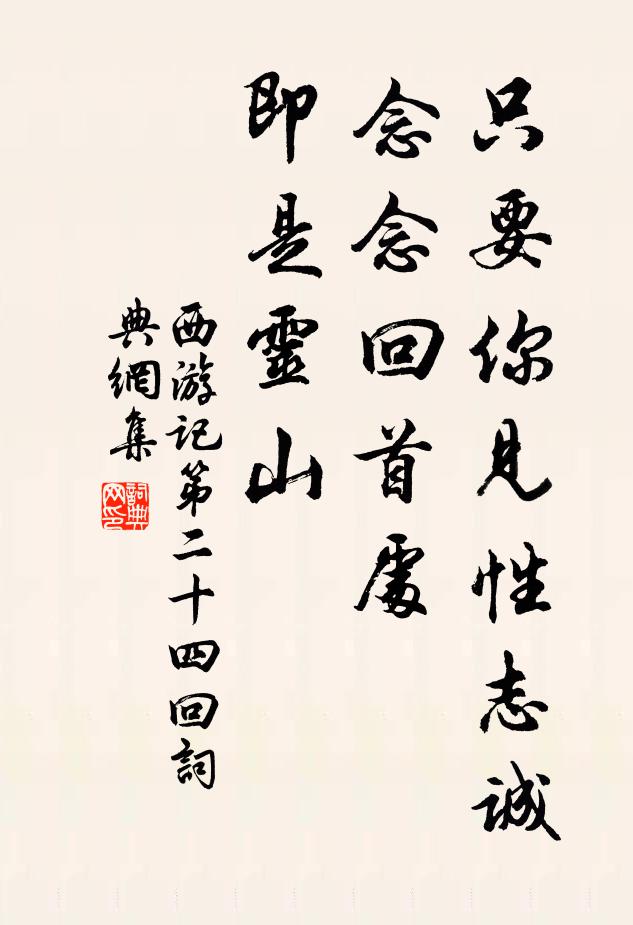 只要你見性志誠
念念回首處
即是靈山
西游記第二十四回詞
典網集
詞典
网印